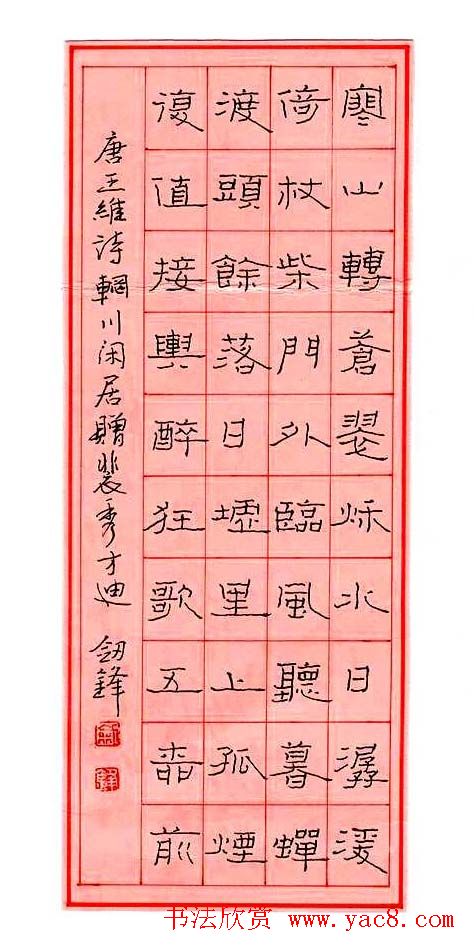 寒山轉蒼翠秋水日潺湲
倚杖柴門外臨風聽暮蟬
渡頭餘落日墟里上孤煙
復值接輿醉狂歌五柳前
唐王維詩輞川闲居贈裴秀才迪 釼鋒
书法欣赏 www.yac8.com